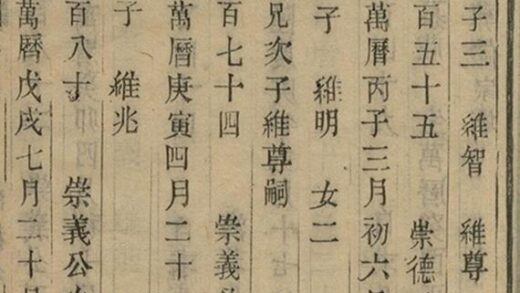 子三 維智 維尊
百五十五 崇德
萬曆丙子三月初六
子 維明 女二
兄次子維尊嗣
百七十四 崇義
萬曆庚寅四月二十
子 維兆
百八十 崇義公
萬曆戊戌七月二十